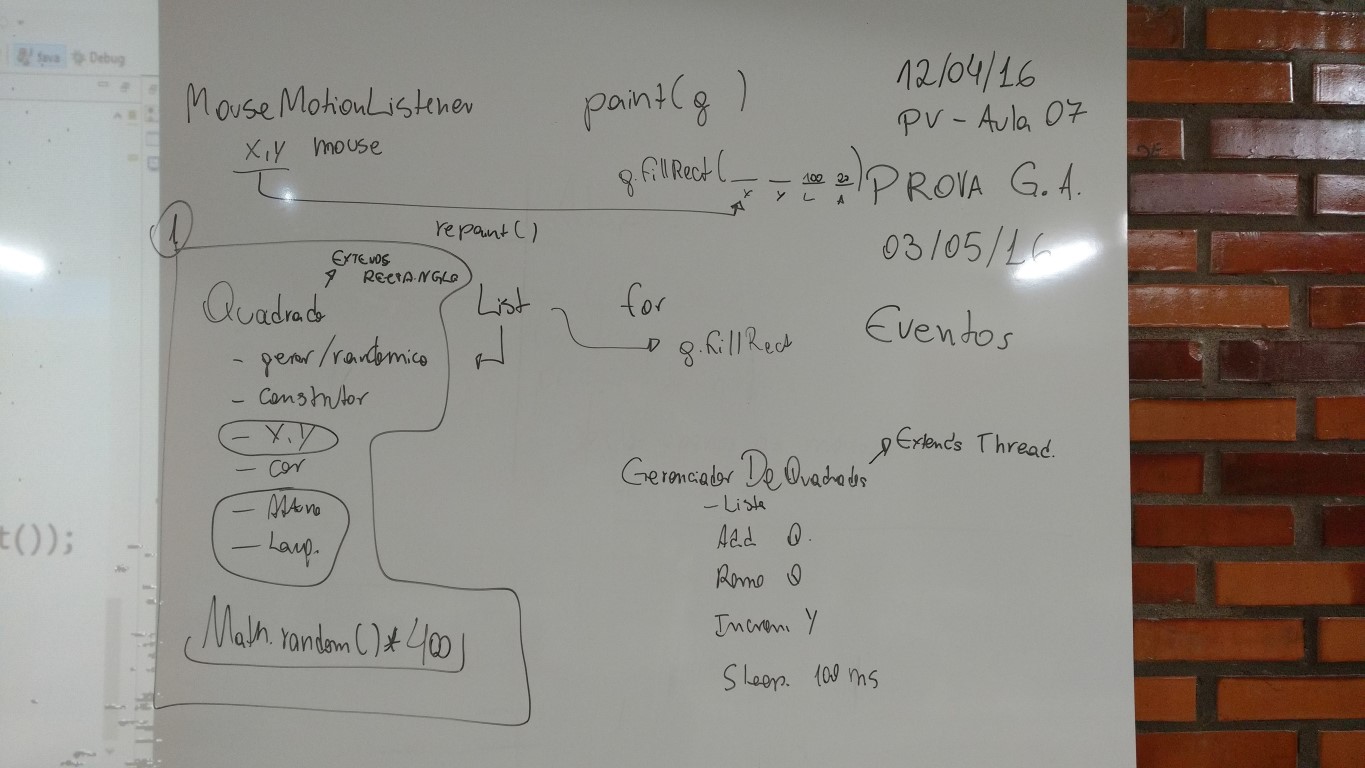 Java Debug
MouseMotionListener
X,Y mouse
paint(g)
g.fillRect(__ __ 100 20)
X Y L A
repaint()
12/04/16
PV - Aula 07
PROVA G.A.
03/05/16
Eventos
1
EXTENDS
RECTANGLE
Quadrado
- gerar/randomico
- construtor
- X,Y
- cor
- Altura
- Larg.
Math.random()*400
List
for
g.fillRect
Gerenciador De Quadrados
Extends Thread.
- Lista
Add Q.
Remo Q
Increm. Y
Sleep. 100 ms
t());